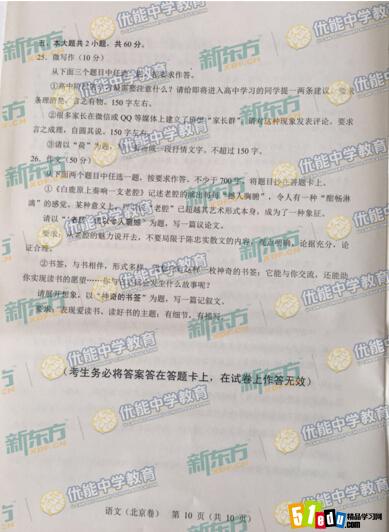 五、本大题共2小题，共60分。
25. 微写作（10分）
从下面三个题目中任选一题，按要求作答。
①高中阶段的学习最需要注意什么？请给即将进入高中学习的同学提一两条建议。要求
条理清楚，言之有物。150字左右。
②很多家长在微信或QQ等媒体上建立了班级“家长群”。请对这种现象发表评论。要求
言之成理，自圆其说。150字左右。
③请以“荷”为题，写一首诗或一段抒情文字。不超过150字。
26. 作文（50分）
从下面两个题目中任选一题，按要求作答。不少于700字。将题目抄在答题卡上。
①《白鹿原上奏响一支老腔》记述老腔的演出每每“撼人胸腑”，令人有一种“酣畅淋
漓”的感受。某种意义上，“老腔”已超越其艺术形式本身，成为了一种象征。
请以“老腔何以令人震撼”为题，写一篇议论文。
要求：从老腔的魅力说开去，不要局限于陈忠实散文的内容，观点明确，论据充分，论
证合理。
②书签，与书相伴，形式多样。设想你有这样一枚神奇的书签：它能与你交流，还能助
你实现读书的愿望……你与它之间会发生什么故事呢？
请展开想象，以“神奇的书签”为题，写一篇记叙文。
要求：表现爱读书、读好书的主题；有细节，有描写。
（考生务必将答案答在答题卡上，在试卷上作答无效）
语文（北京卷） 第 10 页（共 10 页）
新东方
XDF.CN
优能中学教育
51edu
精品学习网
.com